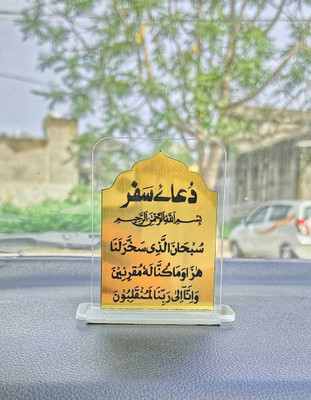 دُعائے سَفَر
بِسْمِ اللهِ الرَّحْمٰنِ الرَّحِيْمِ
سُبْحَانَ الَّذِی سَخَّرَ لَنَا
هٰزَا وَمَا كُنَّا لَهٗ مُقْرِنِيْنَ
وَاِنَّآ اِلٰى رَبِّنَا لَمُنْقَلِبُوْنَ